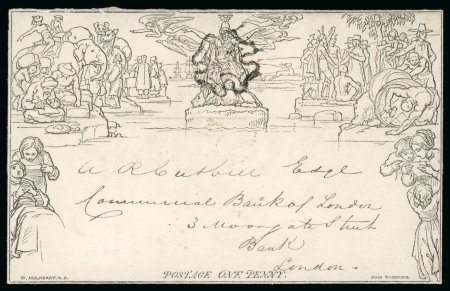 A R Cutbill Esqre
Commercial Bank of London
3 Moorgate Street
Bank
London.
W. MULREADY. R.A.
POSTAGE ONE PENNY.
JOHN THOMPSON.